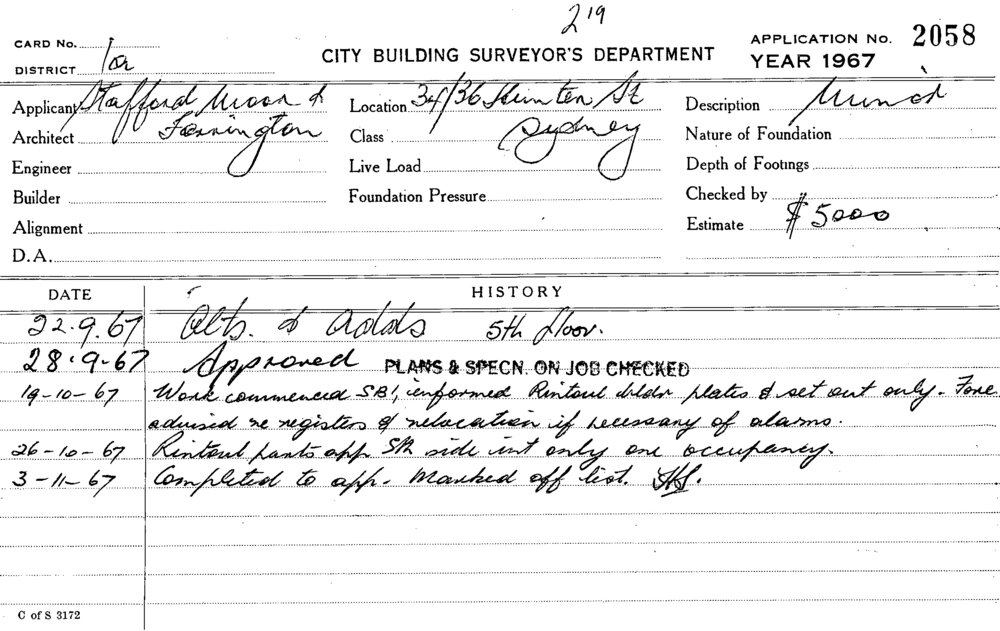 219
CARD No. 1a
DISTRICT
CITY BUILDING SURVEYOR'S DEPARTMENT
APPLICATION No. 2058
YEAR 1967
Applicant Stafford Moor &
Architect Farrington
Engineer
Builder
Alignment
D.A.
Location 34/36 Hunter St
Class Sydney
Live Load
Foundation Pressure
Description Minor
Nature of Foundation
Depth of Footings
Checked by
Estimate $5000
DATE HISTORY
22.9.67 Alts. & adds 5th floor.
28.9.67 Approved PLANS & SPECN. ON JOB CHECKED
19-10-67 Work commenced informed Rintoul bldr plates & set out only. Fore
advised re registers & relocation if necessary of alarms.
26-10-67 Rintoul parts app side int only one occupancy.
3-11-67 Completed to app. Marked off list.
C of S 3172